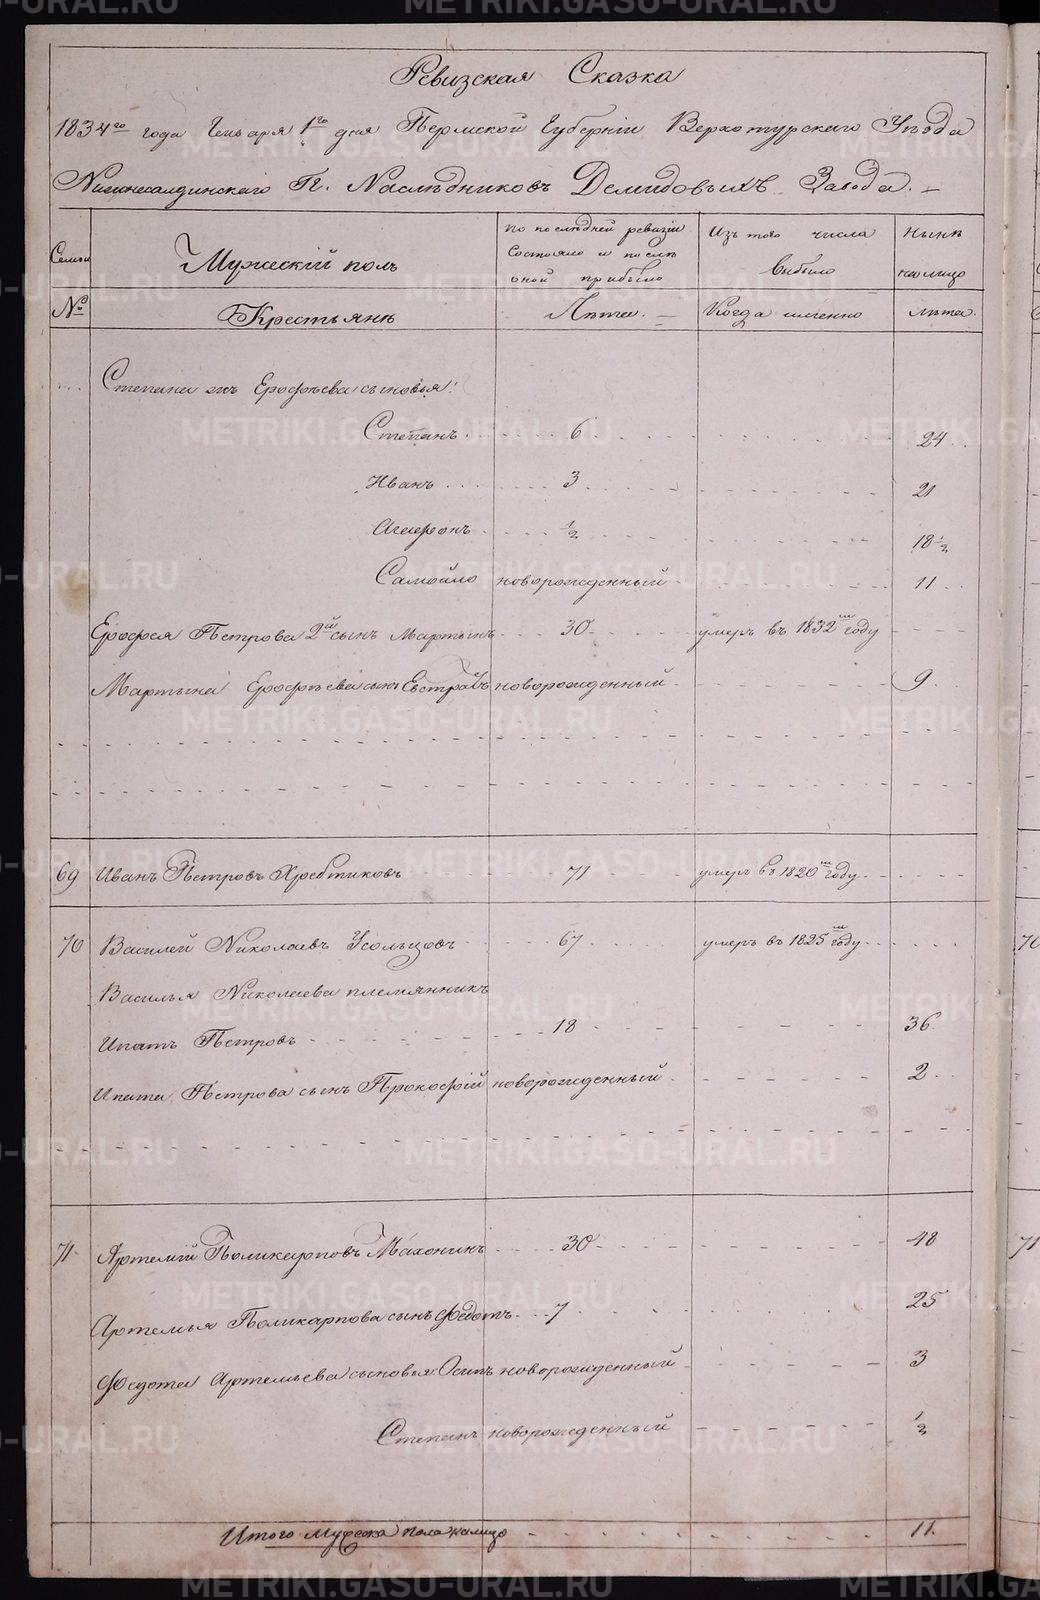 Ревизская Сказка
1834го года Генваря 1го дня Пермской Губернiи Верхотурскаго Уѣзда
Нижнесалдинскаго Г. Г. Наслѣдниковъ Демидовыхъ Завода.
Семьи Мужескiй полъ По послѣдней ревизiи состояло и послѣ оной прибыло Изъ того числа выбыло Нынѣ налицо
№ Крестьянѣ Лѣта. Когда именно Лѣта.
Степана Ерофѣева сыновья:
Степанъ 6 24
Иванъ 3 21
Агафонъ ½ 18½
Самойло новорожденный 11
Ерофея Петрова 2й сынъ Мартынъ 30 умеръ въ 1832м году
Мартына Ерофѣева сынъ Евстрафъ новорожденный 9
69 Иванъ Петровъ Хребтиковъ 71 умеръ въ 1820м году
70 Василей Николаевъ Усольцовъ 67 умеръ въ 1825м году
Василья Николаева племянникъ
Ипатъ Петровъ 18 36
Ипата Петрова сынъ Прокофiй новорожденный 2
71 Артемiй Поликарповъ Махоникъ 30 48
Артемья Поликарпова сынъ Федотъ 7 25
Федота Артемьева сыновья: Осипъ новорожденный 3
Степанъ новорожденный ½
Итого мужеска пола налицо 11.
70
71
METRIKI.GASO-URAL.RU